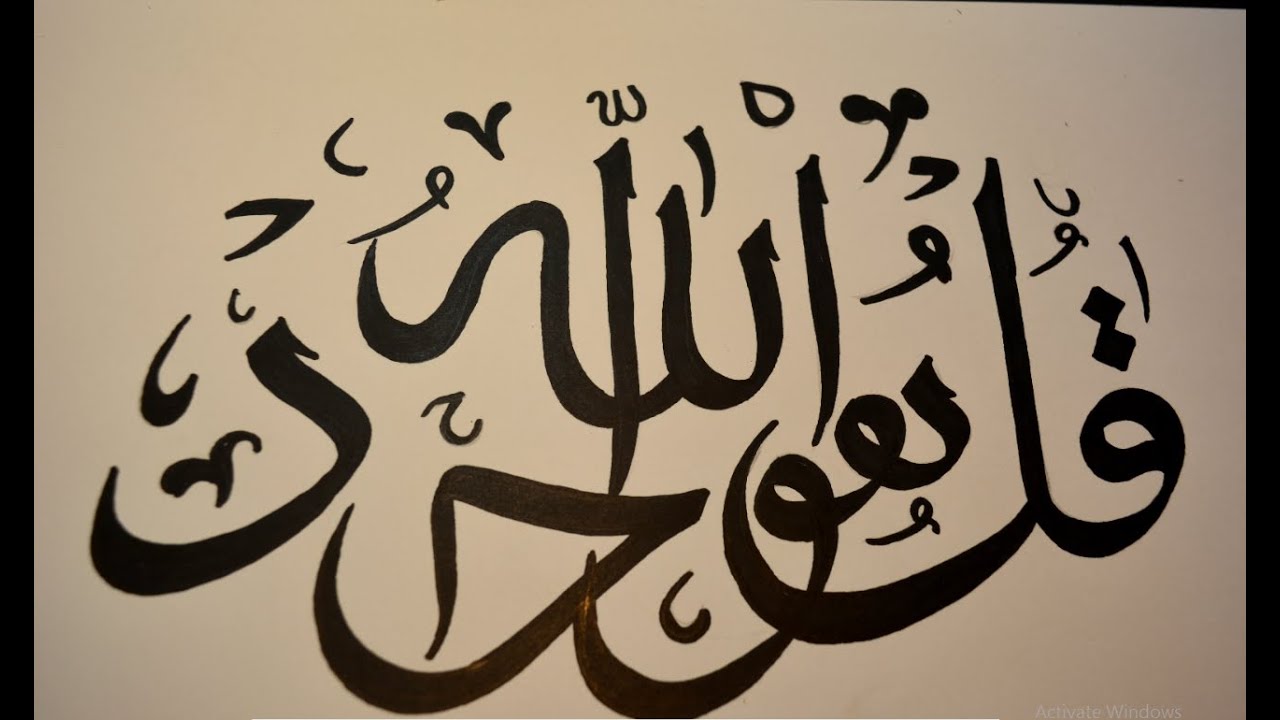 قُلْ هُوَ اللّٰهُ أَحَدٌ
Activate Windows